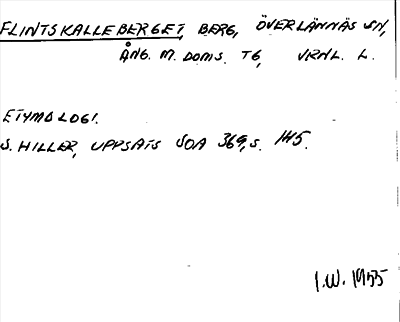 FLINTSKALLEBERGET, BERG, ÖVERLÄNNÄS SN,
ÅNG. M. DOMS. TG, VRNL. L.
ETYMOLOGI.
S. HILLER, UPPSATS SOA 369, S. 145.
I.W. 1955